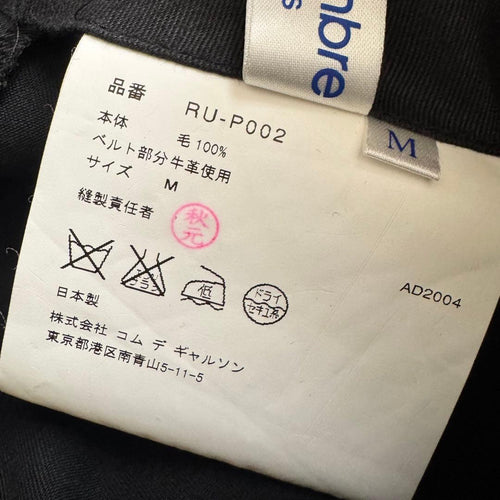 mbre
s
M
品番 RU-P002
本体 毛100%
ベルト部分牛革使用
サイズ M
縫製責任者 秋元
エンソ
サラシ
低
ドライ
セキユ系
AD2004
日本製
株式会社 コム デ ギャルソン
東京都港区南青山5-11-5